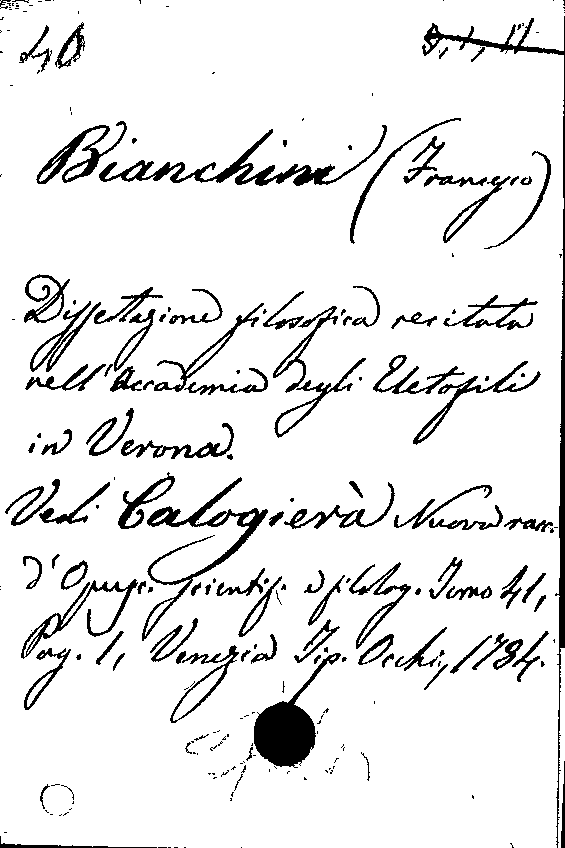 40
9, 1, 11
Bianchini (Francesco)
Dissertazione filosofica recitata
nell'Accademia degli Aletofili
in Verona.
Vedi Calogierà Nuova racc.
d'Opusc. scientif. e filolog. Tomo 41,
Pag. 1, Venezia Tip. Occhi, 1784.